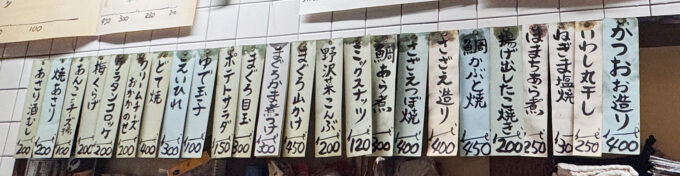 100
450
300
200
かつおお造り 400
いわし丸干し 400
ねぎま塩焼 350
はまちあら煮 250
揚げ出したこ焼き 200
鯛かぶと焼 450
さざえ造り 400
さざえつぼ焼 400
鯛あら煮 300
ミックスナッツ 120
野沢菜こんぶ 200
まぐろ山かけ 450
まぐろかま煮つけ 300
まぐろ目玉 300
ポテトサラダ 150
ゆで玉子 100
こえいひれ 300
どて焼 400
クリームチーズおかかのせ 200
グラタンコロッケ 200
梅くらげ 200
あんこチーズ揚 100
焼あさり 200
あさり酒むし 200